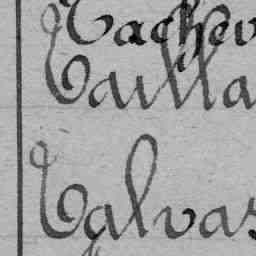 Tachev
Tailla
Talvas